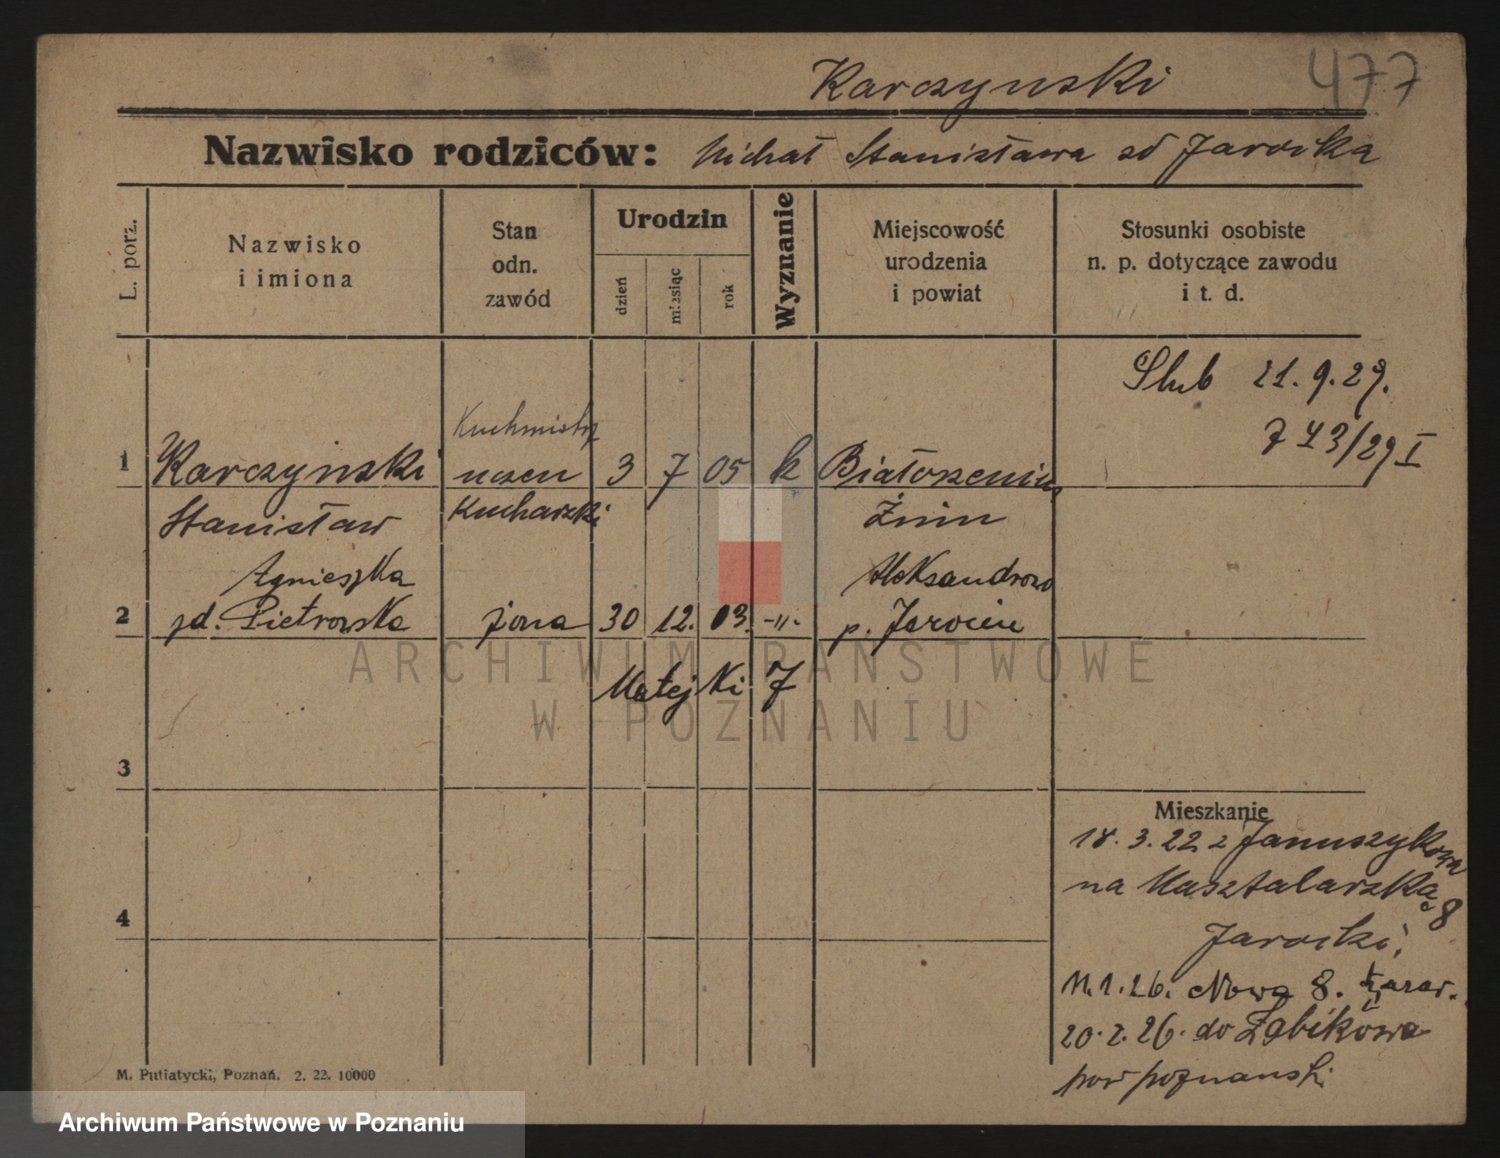 Karczynski
477
Nazwisko rodziców: Michał Stanisława Jarocka
L. porz.
Nazwisko
i imiona
Stan
odn.
zawód
Urodzin
dzień
miesiąc
rok
Wyznanie
Miejscowość
urodzenia
i powiat
Stosunki osobiste
n. p. dotyczące zawodu
i t. d.
Slub 21.9.29.
743/29 I
Kuchmistrz
1 Karczynski uczen 3 7 05 k
Stanisław Kucharski Żnin
Agnieszka Aleksandrowo
2 Pietrowska żona 30 12. 03. -"- p. Jarocin
Matejki 7
3
Mieszkanie
18.3.22 z Januszykowa
na Masztalarska 8
4
11.1.26. Nowa 8.
20.2.26. do Żabikowa
pow poznanski
M. Putiatycki, Poznań. 2. 22. 10000
ARCHIWUM PAŃSTWOWE
W POZNANIU
Archiwum Państwowe w Poznaniu